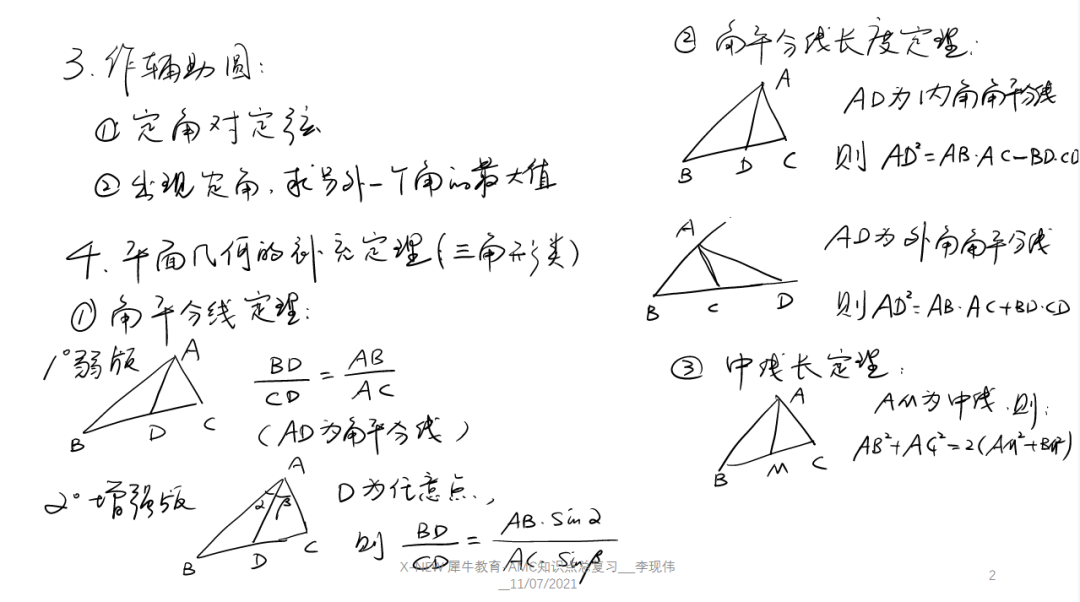 3. 作辅助圆:
① 定角对定弦
② 出现定角, 求另外一个角的最大值
4. 平面几何的补充定理(三角形类)
① 角平分线定理:
1° 弱版
A
B
D
C
BD/CD = AB/AC
(AD为角平分线)
2° 增强版
A
α
β
B
D
C
D为任意点,
则 BD/CD = AB·sinα/AC·sinβ
② 角平分线长度定理:
A
B
D
C
AD为内角角平分线
则 AD²=AB·AC-BD·CD
A
B
C
D
AD为外角角平分线
则AD²=AB·AC+BD·CD
③ 中线长定理:
A
B
M
C
AM为中线,则:
AB²+AC²=2(AM²+BM²)
X-NEW 犀牛教育 AMC知识点总复习__李现伟
__11/07/2021
2